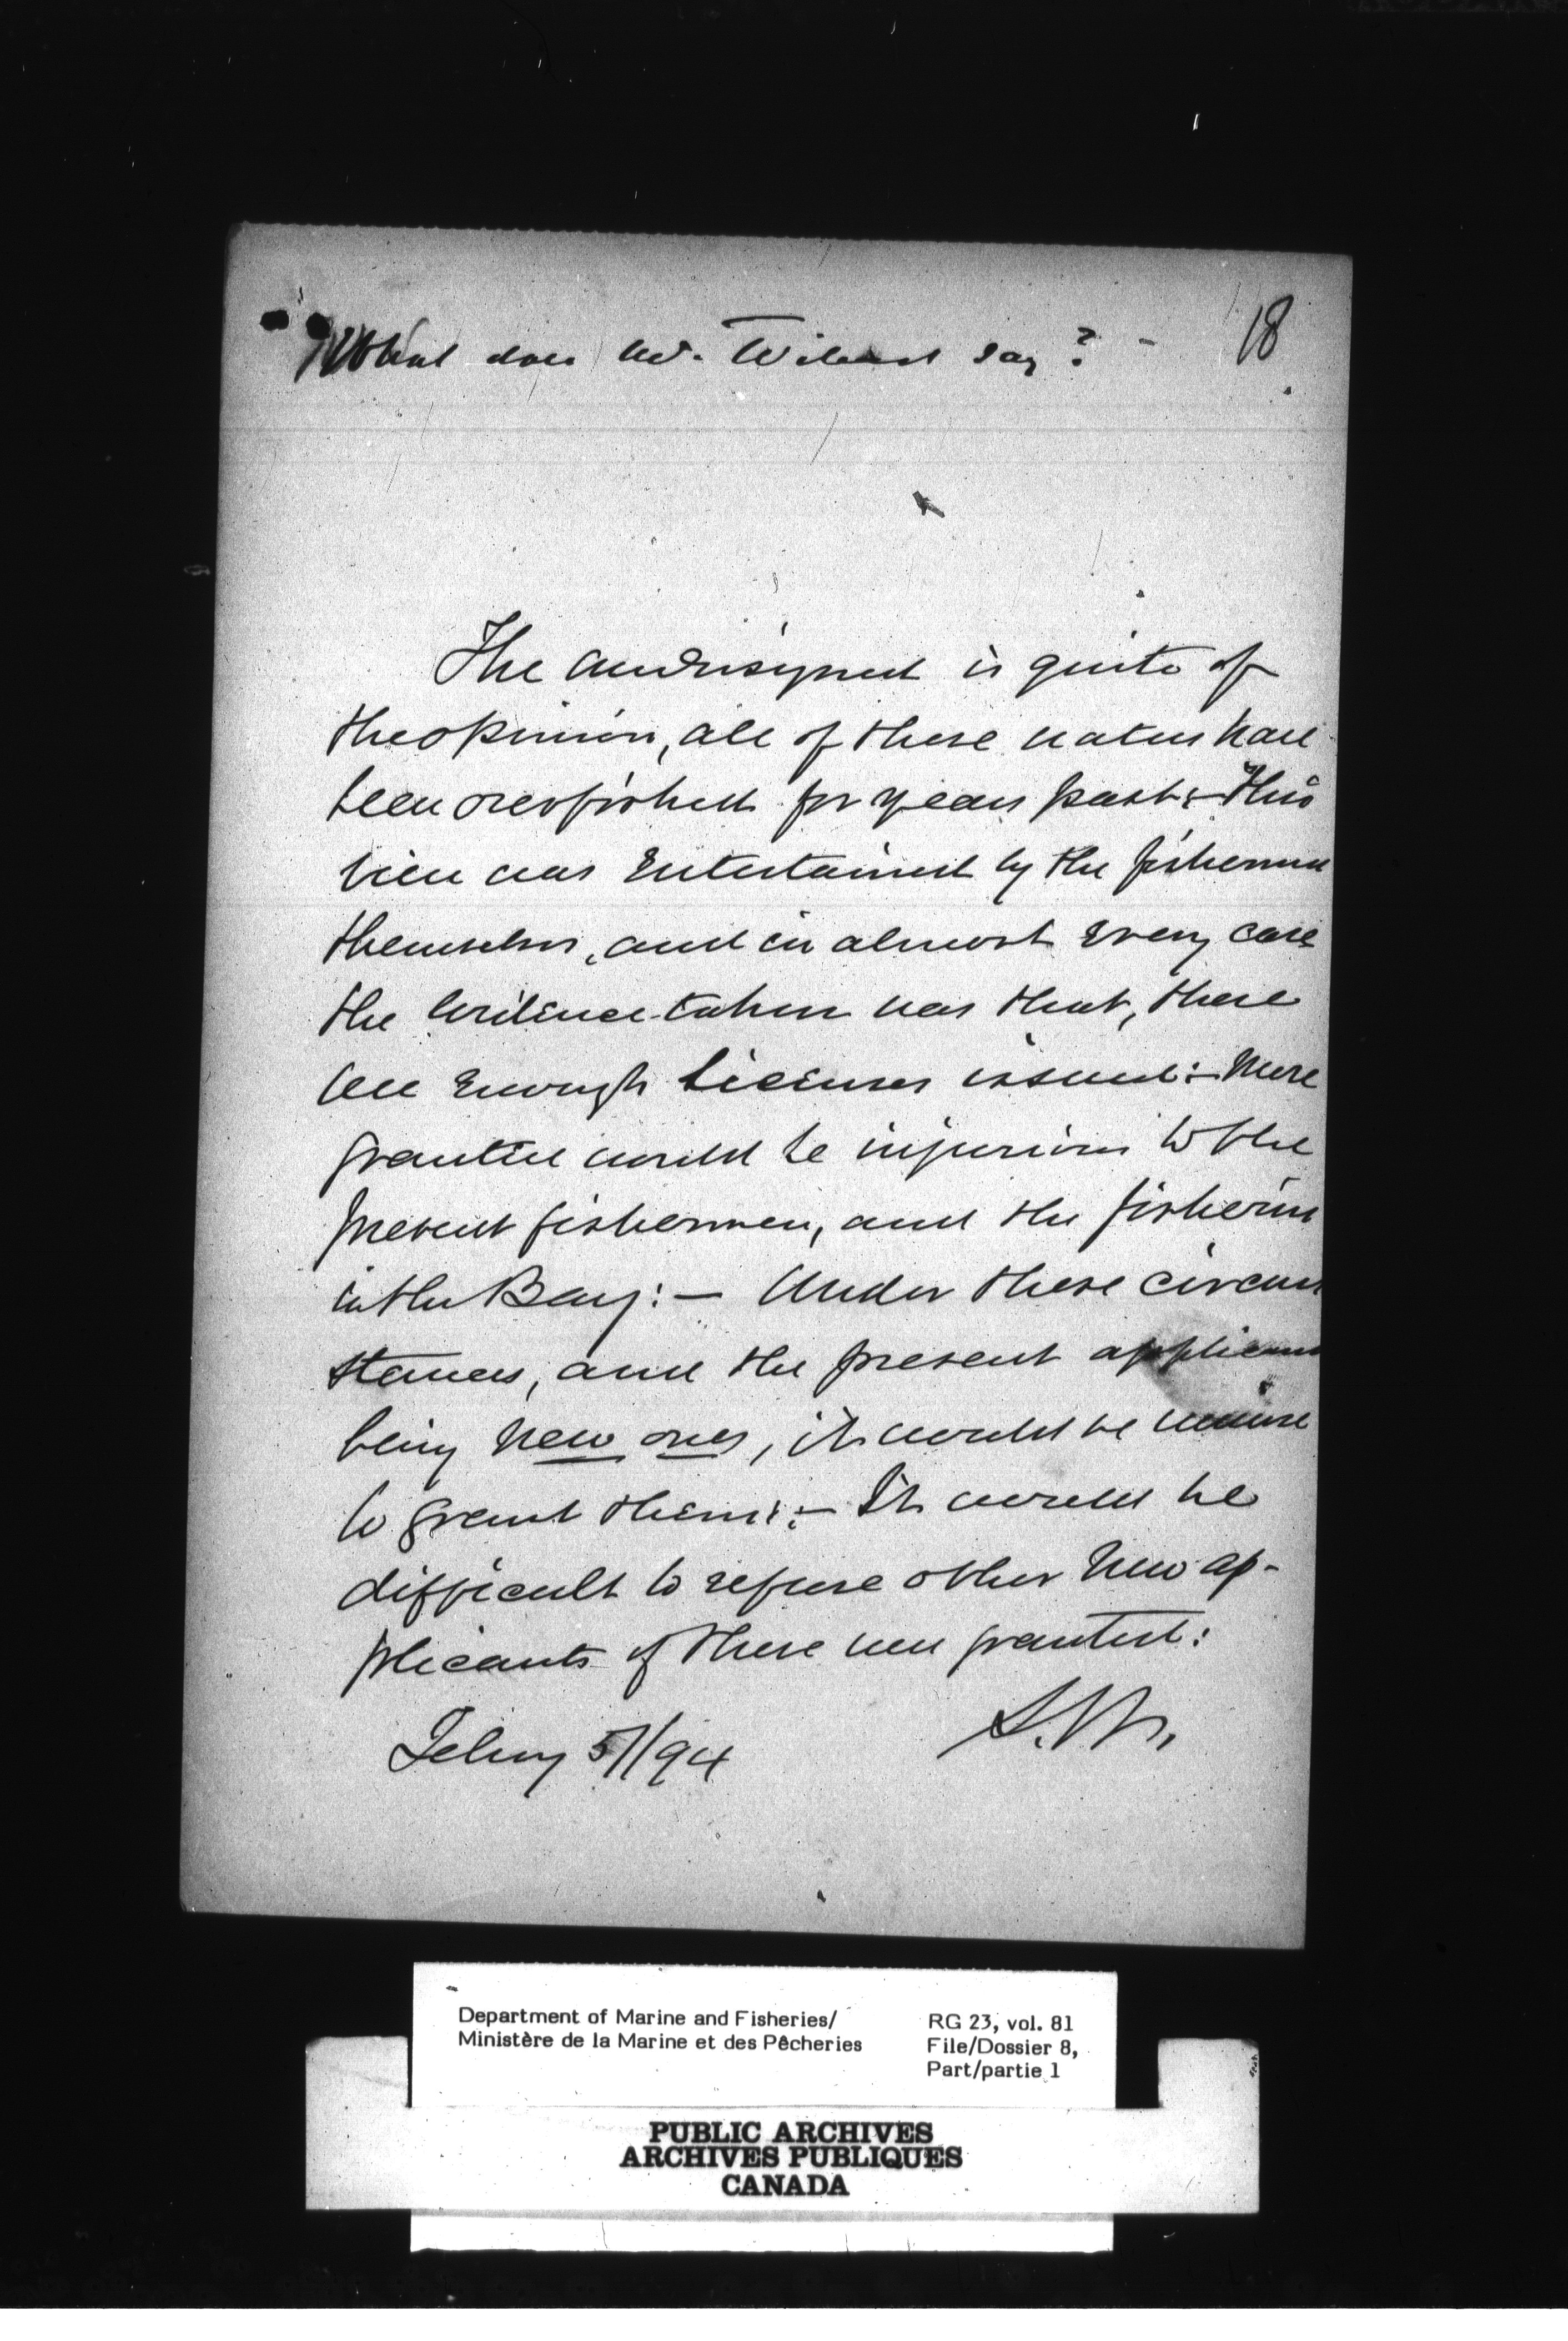 What does Mr. Wilmot say? - 18
The undersigned is quite of
the opinion, all of these waters have
been overfished for years past:- this
view was Entertained by the fishermen
themselves, and in almost Every case
the Evidence taken was that, there
are Enough licenses issued:- More
granted would be injurious to the
present fishermen, and the fisheries
in the Bay:- Under these circum
stances, and the present applicants
being new ones, it would be unwise
to grant them:- It would be
difficult to refuse other new ap-
plicants if these were granted:
S.W.
Febuy 5/94
Department of Marine and Fisheries/ RG 23, vol. 81
Ministère de la Marine et des Pêcheries File/Dossier 8,
Part/partie 1
PUBLIC ARCHIVES
ARCHIVES PUBLIQUES
CANADA